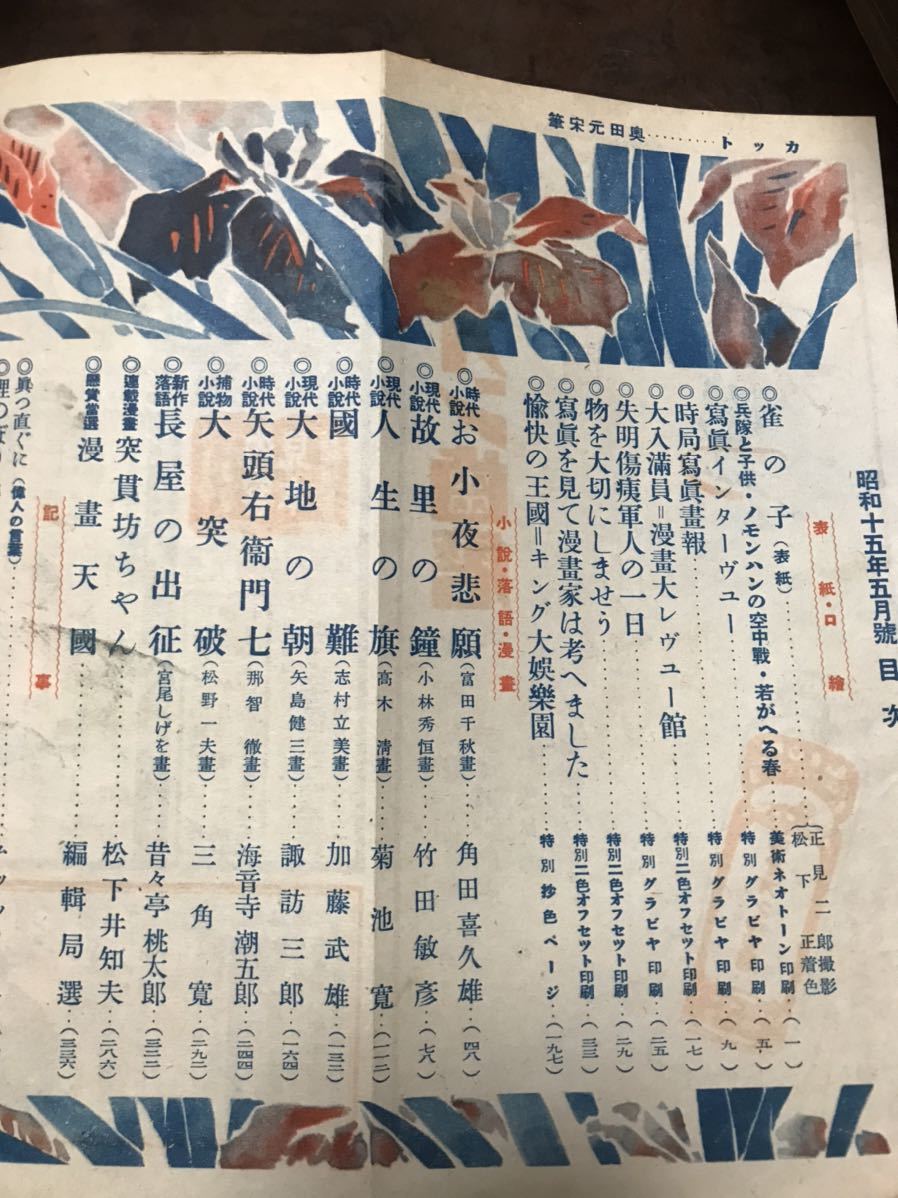 カット………奥田元宋筆
昭和十五年五月號 目次
表紙・口繪
◎雀の子(表紙)……正見二郎撮影 松下正着色
美術ネオトーン印刷…(一)
◎兵隊と子供・ノモンハンの空中戰・若がへる春…特別グラビヤ印刷…(五)
◎寫眞インターヴュー……特別グラビヤ印刷…(九)
◎時局寫眞畫報……特別二色オフセット印刷…(一七)
◎大入滿員=漫畫大レヴュー館……特別グラビヤ印刷…(二五)
◎失明傷痍軍人の一日……特別二色オフセット印刷…(二九)
◎物を大切にしませう……特別二色オフセット印刷…(三三)
◎寫眞を見て漫畫家は考へました
◎愉快の王國=キング大娛樂園……特別抄色ページ…(一九七)
小說・落語・漫畫
◎時代小說 お小夜悲願(富田千秋畫)……角田喜久雄…(四八)
◎現代小說 故里の鐘(小林秀恒畫)……竹田敏彥…(七八)
◎現代小說 人生の旗(高木淸畫)……菊池寬…(一一二)
◎時代小說 國難(志村立美畫)……加藤武雄…(一三二)
◎現代小說 大地の朝(矢島健三畫)……諏訪三郎…(一六四)
◎時代小說 矢頭右衞門七(那智徹畫)……海音寺潮五郎…(二四四)
◎捕物小說 大突破(松野一夫畫)……三角寬…(二九二)
◎新作落語 長屋の出征(宮尾しげを畫)……昔々亭桃太郎…(三二二)
◎連載漫畫 突貫坊ちやん……松下井知夫…(二八六)
◎懸賞當選 漫畫天國……編輯局選…(三三六)
記事
◎眞つ直ぐに(偉人の言葉)……